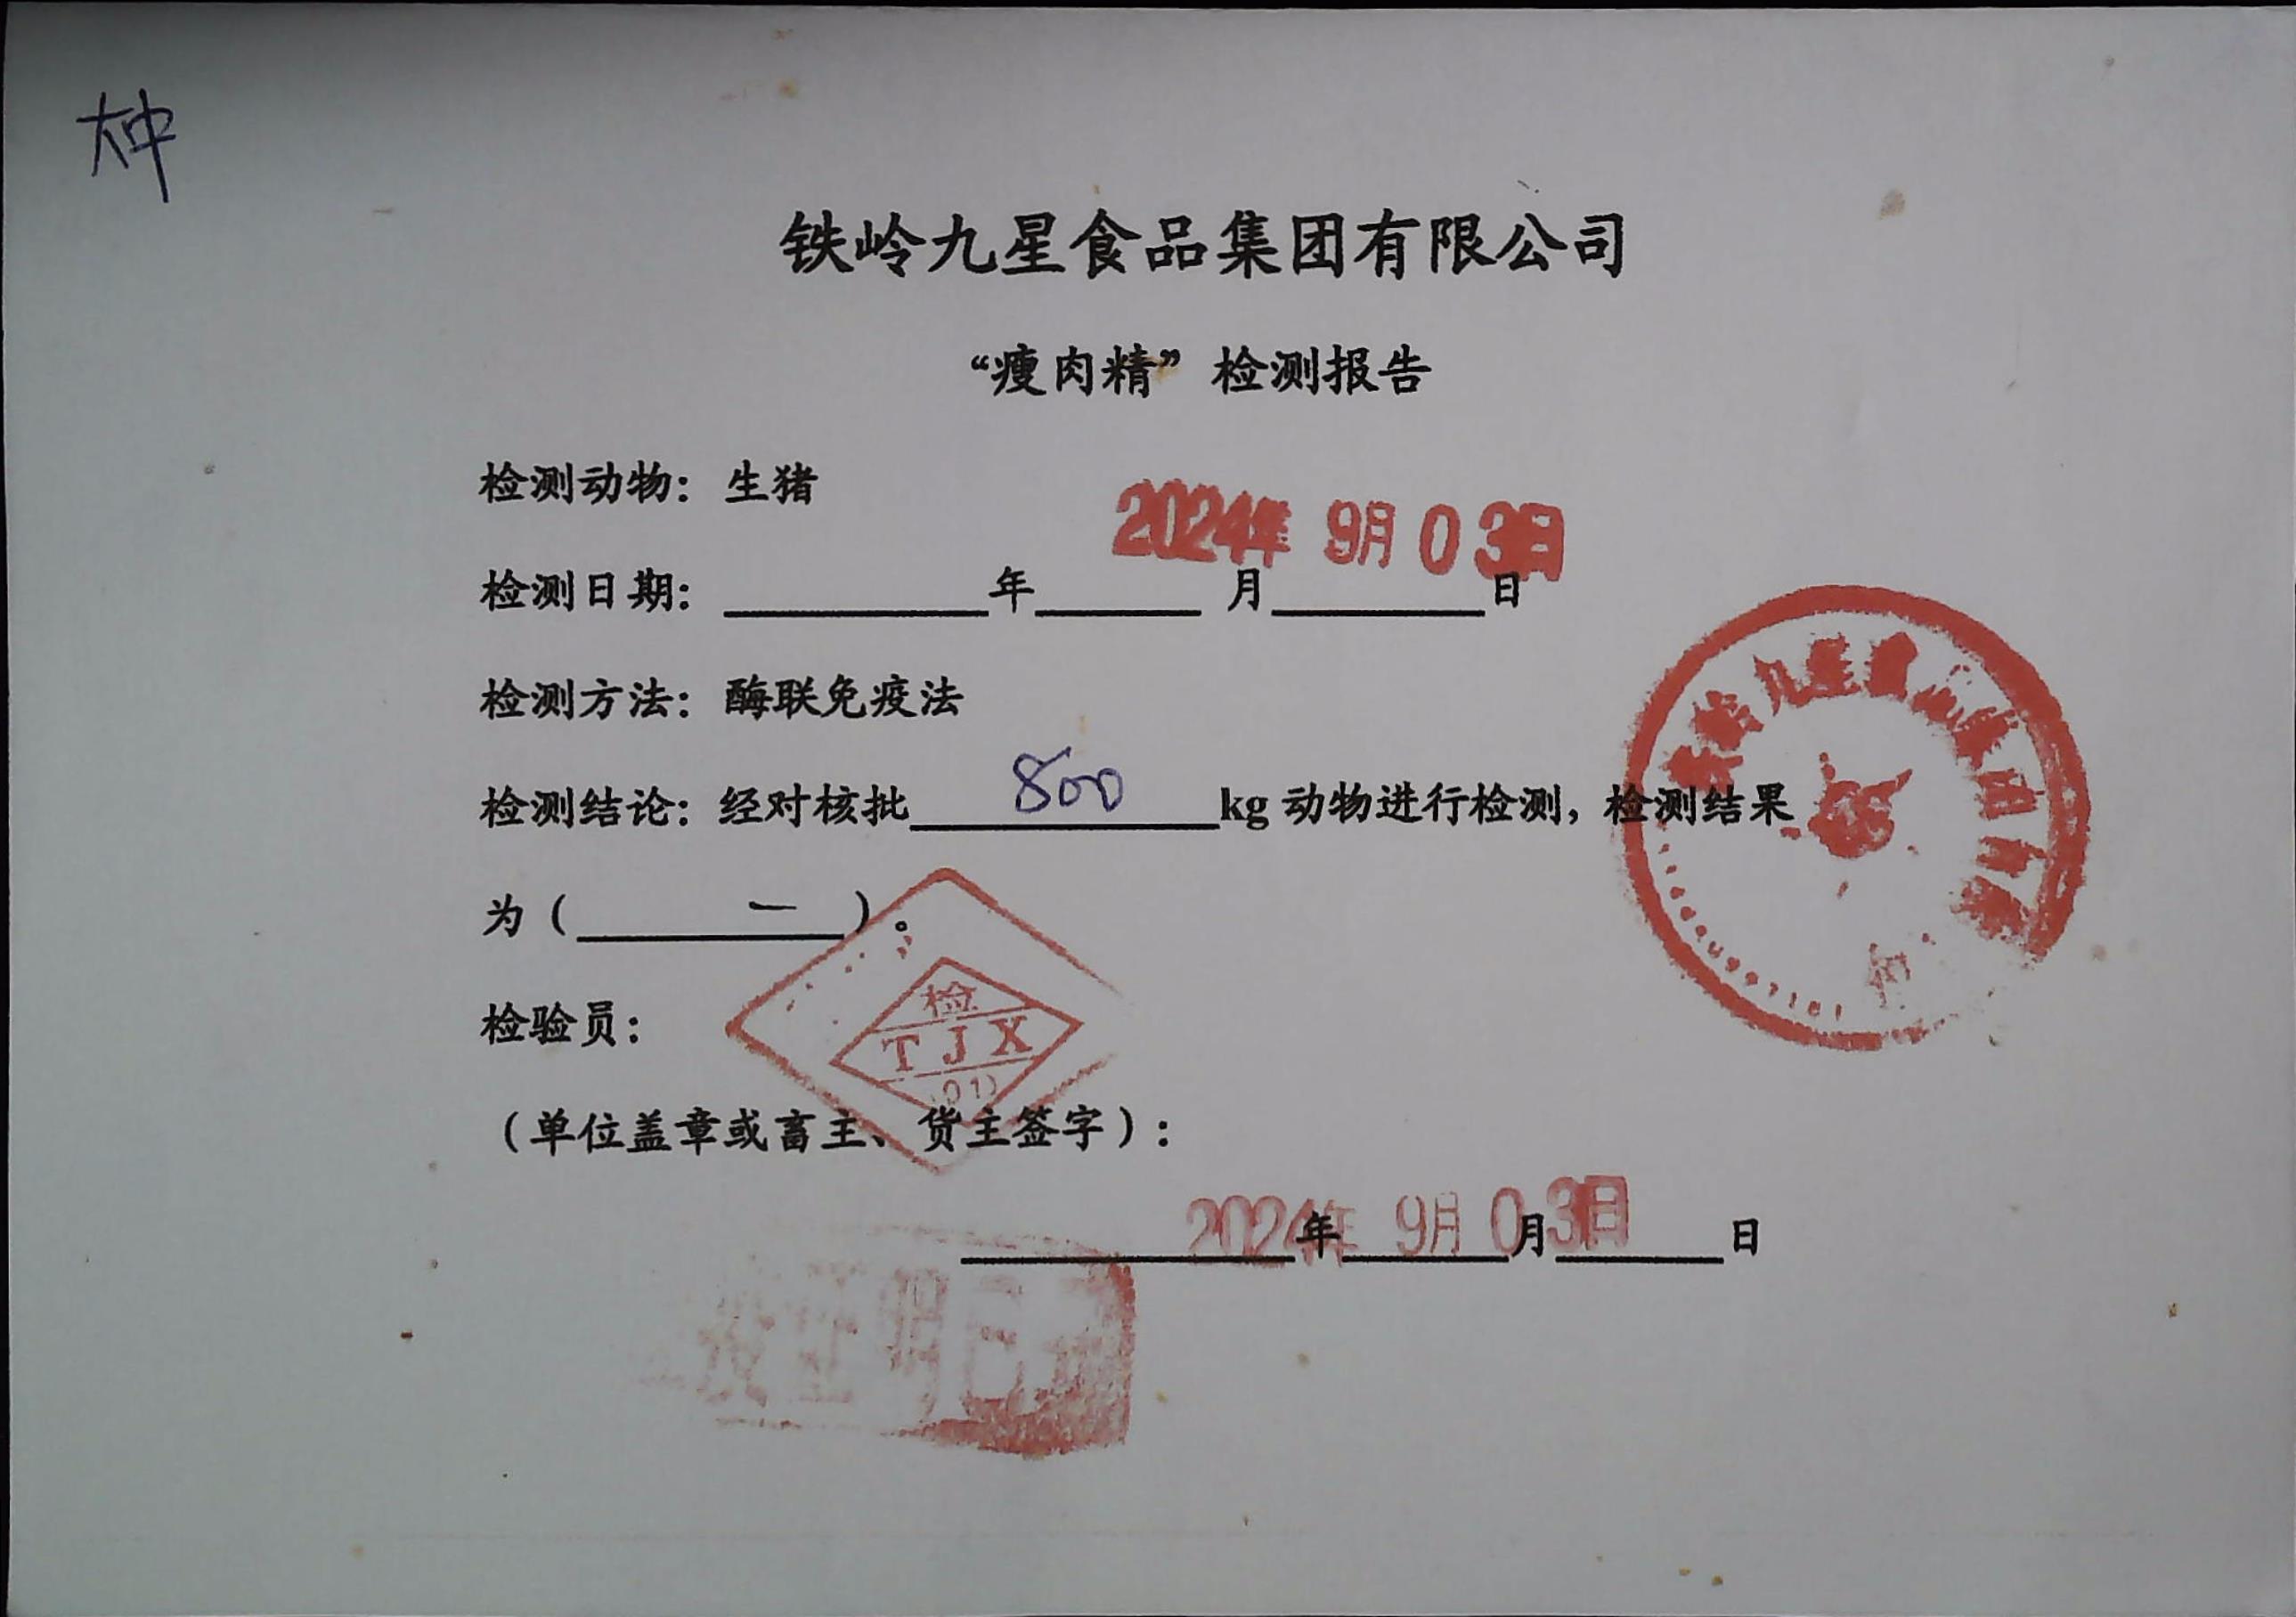 铁岭九星食品集团有限公司
“瘦肉精”检测报告
检测动物：生猪
2024年 9月 03日
检测日期：年 月日
检测方法：酶联免疫法
检测结论：经对核批800kg 动物进行检测，检测结果
为（一）。
检
TJX
(01)
检验员：
（单位盖章或畜主、货主签字）：
2024年 9月 03日
年月日